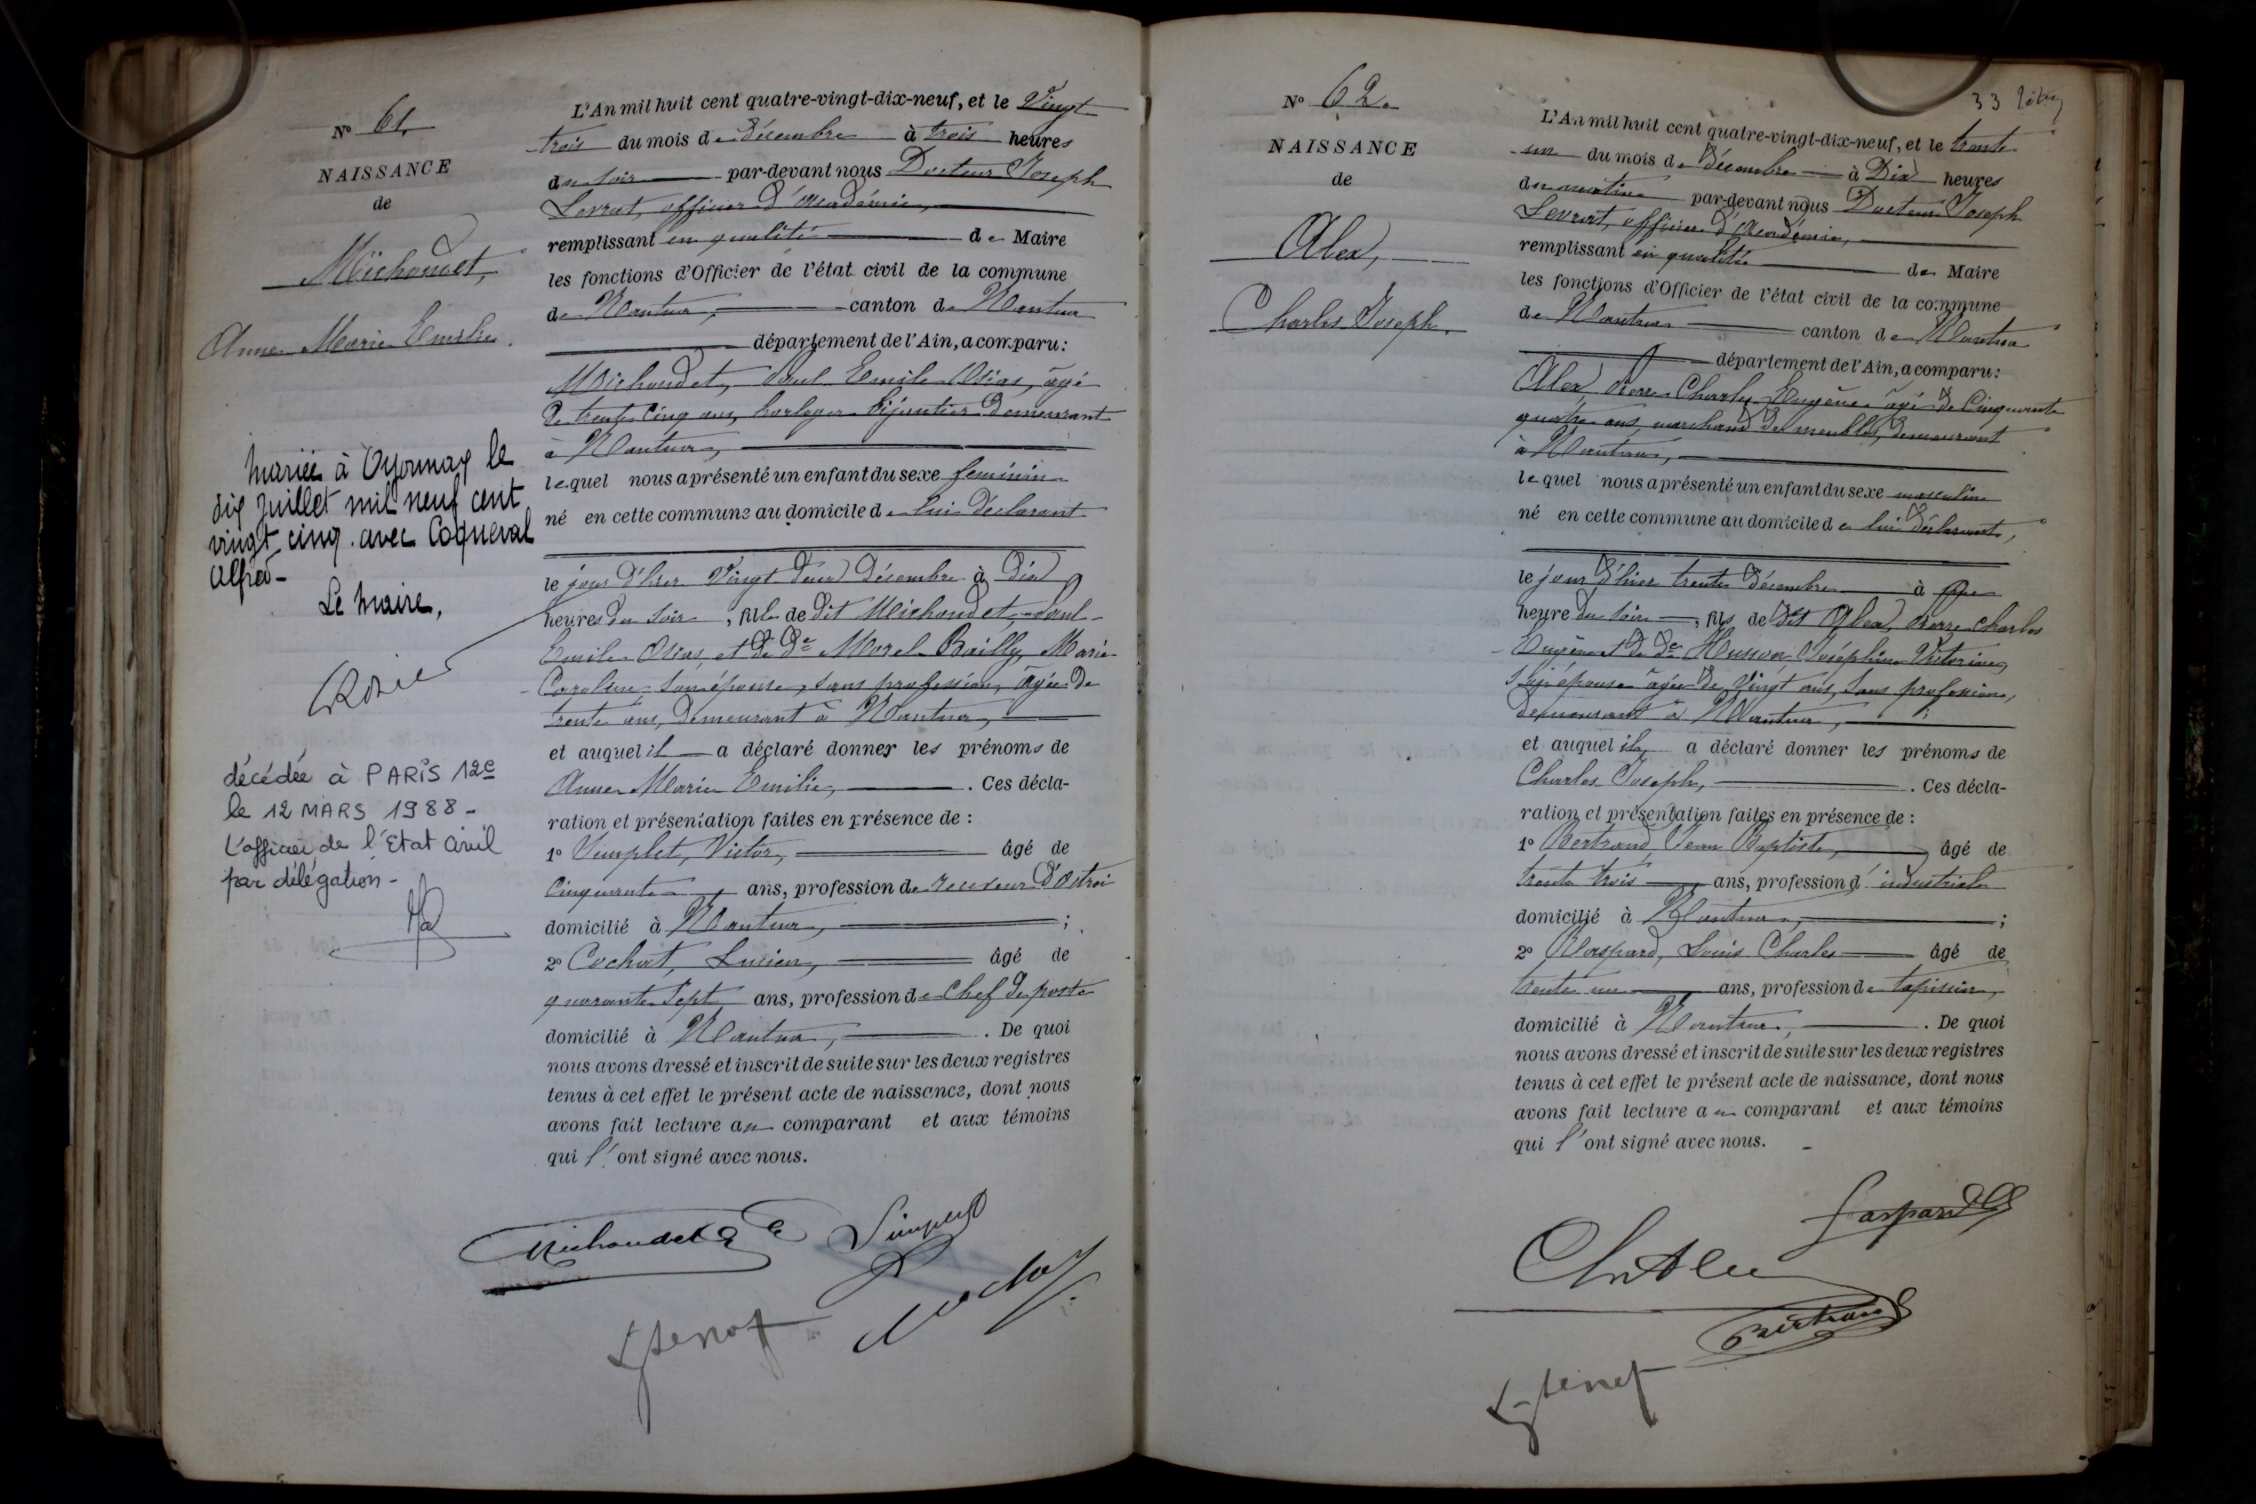 N° 61.
NAISSANCE
de
Michaudet,
Anne Marie Emilie.
Mariée à Oyonnax le
dix Juillet mil neuf cent
vingt cinq avec Coqueval
Alfred -
Le Maire,
décédée à PARIS 12e
le 12 MARS 1988 -
L'officier de l'Etat Civil
par délégation -
L'An mil huit cent quatre-vingt-dix-neuf, et le Vingt
trois du mois de décembre à trois heures
du soir par-devant nous Docteur Joseph
officier d'Académie,
remplissant en qualité de Maire
les fonctions d'Officier de l'état civil de la commune
de Nantua, canton de Nantua
département de l'Ain, a comparu :
Michaudet, Paul Emile Osias, âgé
de trente cinq ans, horloger bijoutier demeurant
à Nantua,
lequel nous a présenté un enfant du sexe feminin
né en cette commune au domicile de lui déclarant
le jour d'hier Vingt deux décembre à Dix
heures du soir, fille de dit Michaudet, Paul
Emile Osias, et de De Morel Bailly, Marie
Caroline son épouse, sans profession, âgée de
trente ans, demeurant à Nantua,
et auquel il a déclaré donner les prénoms de
Anne Marie Emilie, . Ces décla-
ration et présentation faites en présence de :
1° Simplet, Victor, âgé de
Cinquante ans, profession de receveur d'Octroi
domicilié à Nantua, ;
2° Cochet, Lucien, âgé de
quarante Sept ans, profession de Chef de poste
domicilié à Nantua, . De quoi
nous avons dressé et inscrit de suite sur les deux registres
tenus à cet effet le présent acte de naissance, dont nous
avons fait lecture au comparant et aux témoins
qui l'ont signé avec nous.
Michaudet
Simplet
33
N° 62.
NAISSANCE
de
Alex,
Charles Joseph.
L'An mil huit cent quatre-vingt-dix-neuf, et le trente
un du mois de décembre à Dix heures
du matin par-devant nous Docteur Joseph
officier d'Académie,
remplissant en qualité de Maire
les fonctions d'Officier de l'état civil de la commune
de Nantua canton de Nantua
département de l'Ain, a comparu :
Alex Pierre Charles Eugène âgé de Cinquante
quatre ans, marchand de meubles, demeurant
à Nantua,
lequel nous a présenté un enfant du sexe masculin
né en cette commune au domicile de lui déclarant,
le jour d'hier trente décembre à une
heure du soir, fils de dit Alex, Pierre Charles
Eugène et de De Husson Joséphine Victorine,
son épouse âgée de Vingt ans, sans profession,
demeurant à Nantua,
et auquel il a déclaré donner les prénoms de
Charles Joseph, . Ces décla-
ration et présentation faites en présence de :
1° Bertrand Jean Baptiste, âgé de
trente trois ans, profession d'industriel
domicilié à Nantua, ;
2° Gaspard, Louis Charles âgé de
trente un ans, profession de tapissier,
domicilié à Nantua, . De quoi
nous avons dressé et inscrit de suite sur les deux registres
tenus à cet effet le présent acte de naissance, dont nous
avons fait lecture au comparant et aux témoins
qui l'ont signé avec nous.
Gaspard
Ch Alex
Bertrand